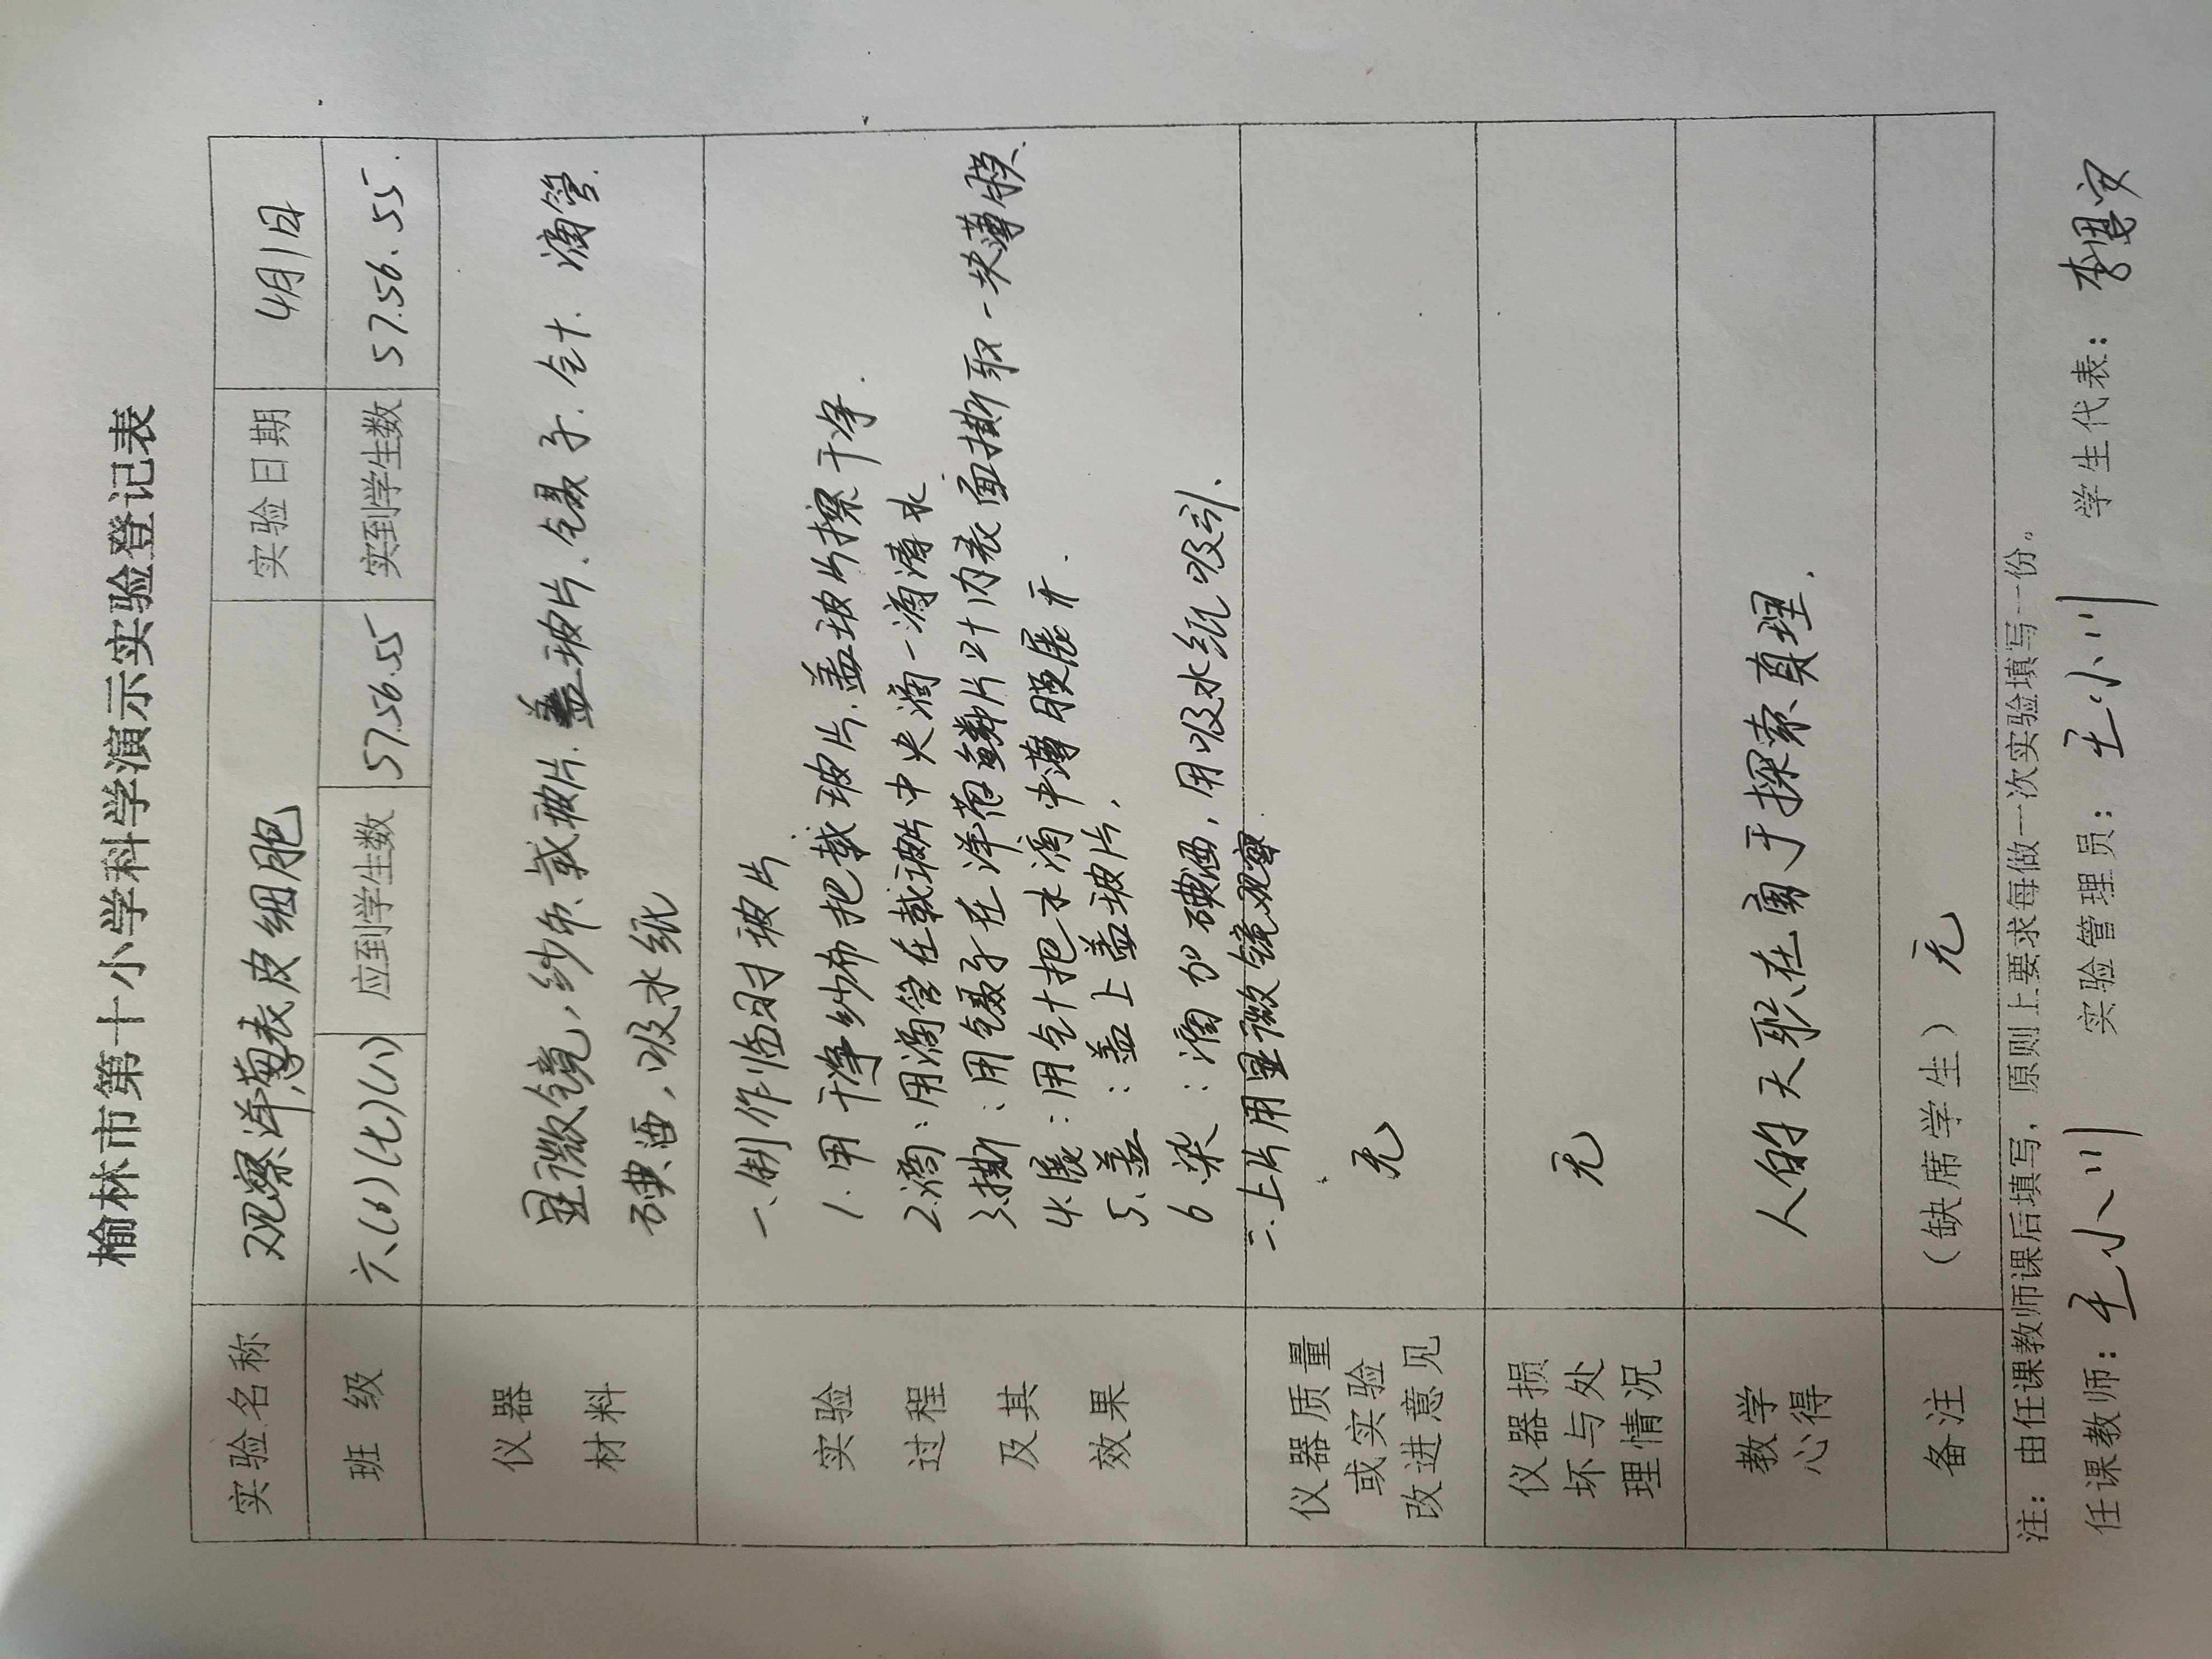 榆林市第十小学科学演示实验登记表
实验名称 观察洋葱表皮细胞 实验日期 4月1日
班级 六(6)(七)(八) 应到学生数 57.56.55 实到学生数 57.56.55.
仪器材料
显微镜,纱布、载玻片.盖玻片、镊子.针.滴管.
碘酒,吸水纸
实验过程及其效果
一、制作临时玻片
1.用干净纱布把载玻片.盖玻片擦干净.
2.滴:用滴管在载玻片中央滴一滴清水
3.撕:用镊子在洋葱鳞片叶内表面撕取一块薄膜.
4.展:用针把水滴中薄膜展开.
5.盖:盖上盖玻片.
6 染:滴加碘酒,用吸水纸吸引.
二.上片用显微镜观察
仪器质量或实验改进意见 无
仪器损坏与处理情况 无
教学心得 人的天职在勇于探索真理.
备注 (缺席学生) 无
注:由任课教师课后填写,原则上要求每做一次实验填写一份。
任课教师:王小川 实验管理员:王小川 学生代表:李思安